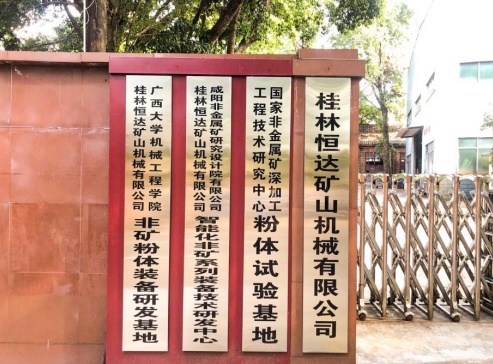 桂林恒达矿山机械有限公司
国家非金属矿深加工
工程技术研究中心
粉体试验基地
咸阳非金属矿研究设计院有限公司
桂林恒达矿山机械有限公司
智能化非矿系列装备技术研发中心
广西大学机械工程学院
桂林恒达矿山机械有限公司
非矿粉体装备研发基地